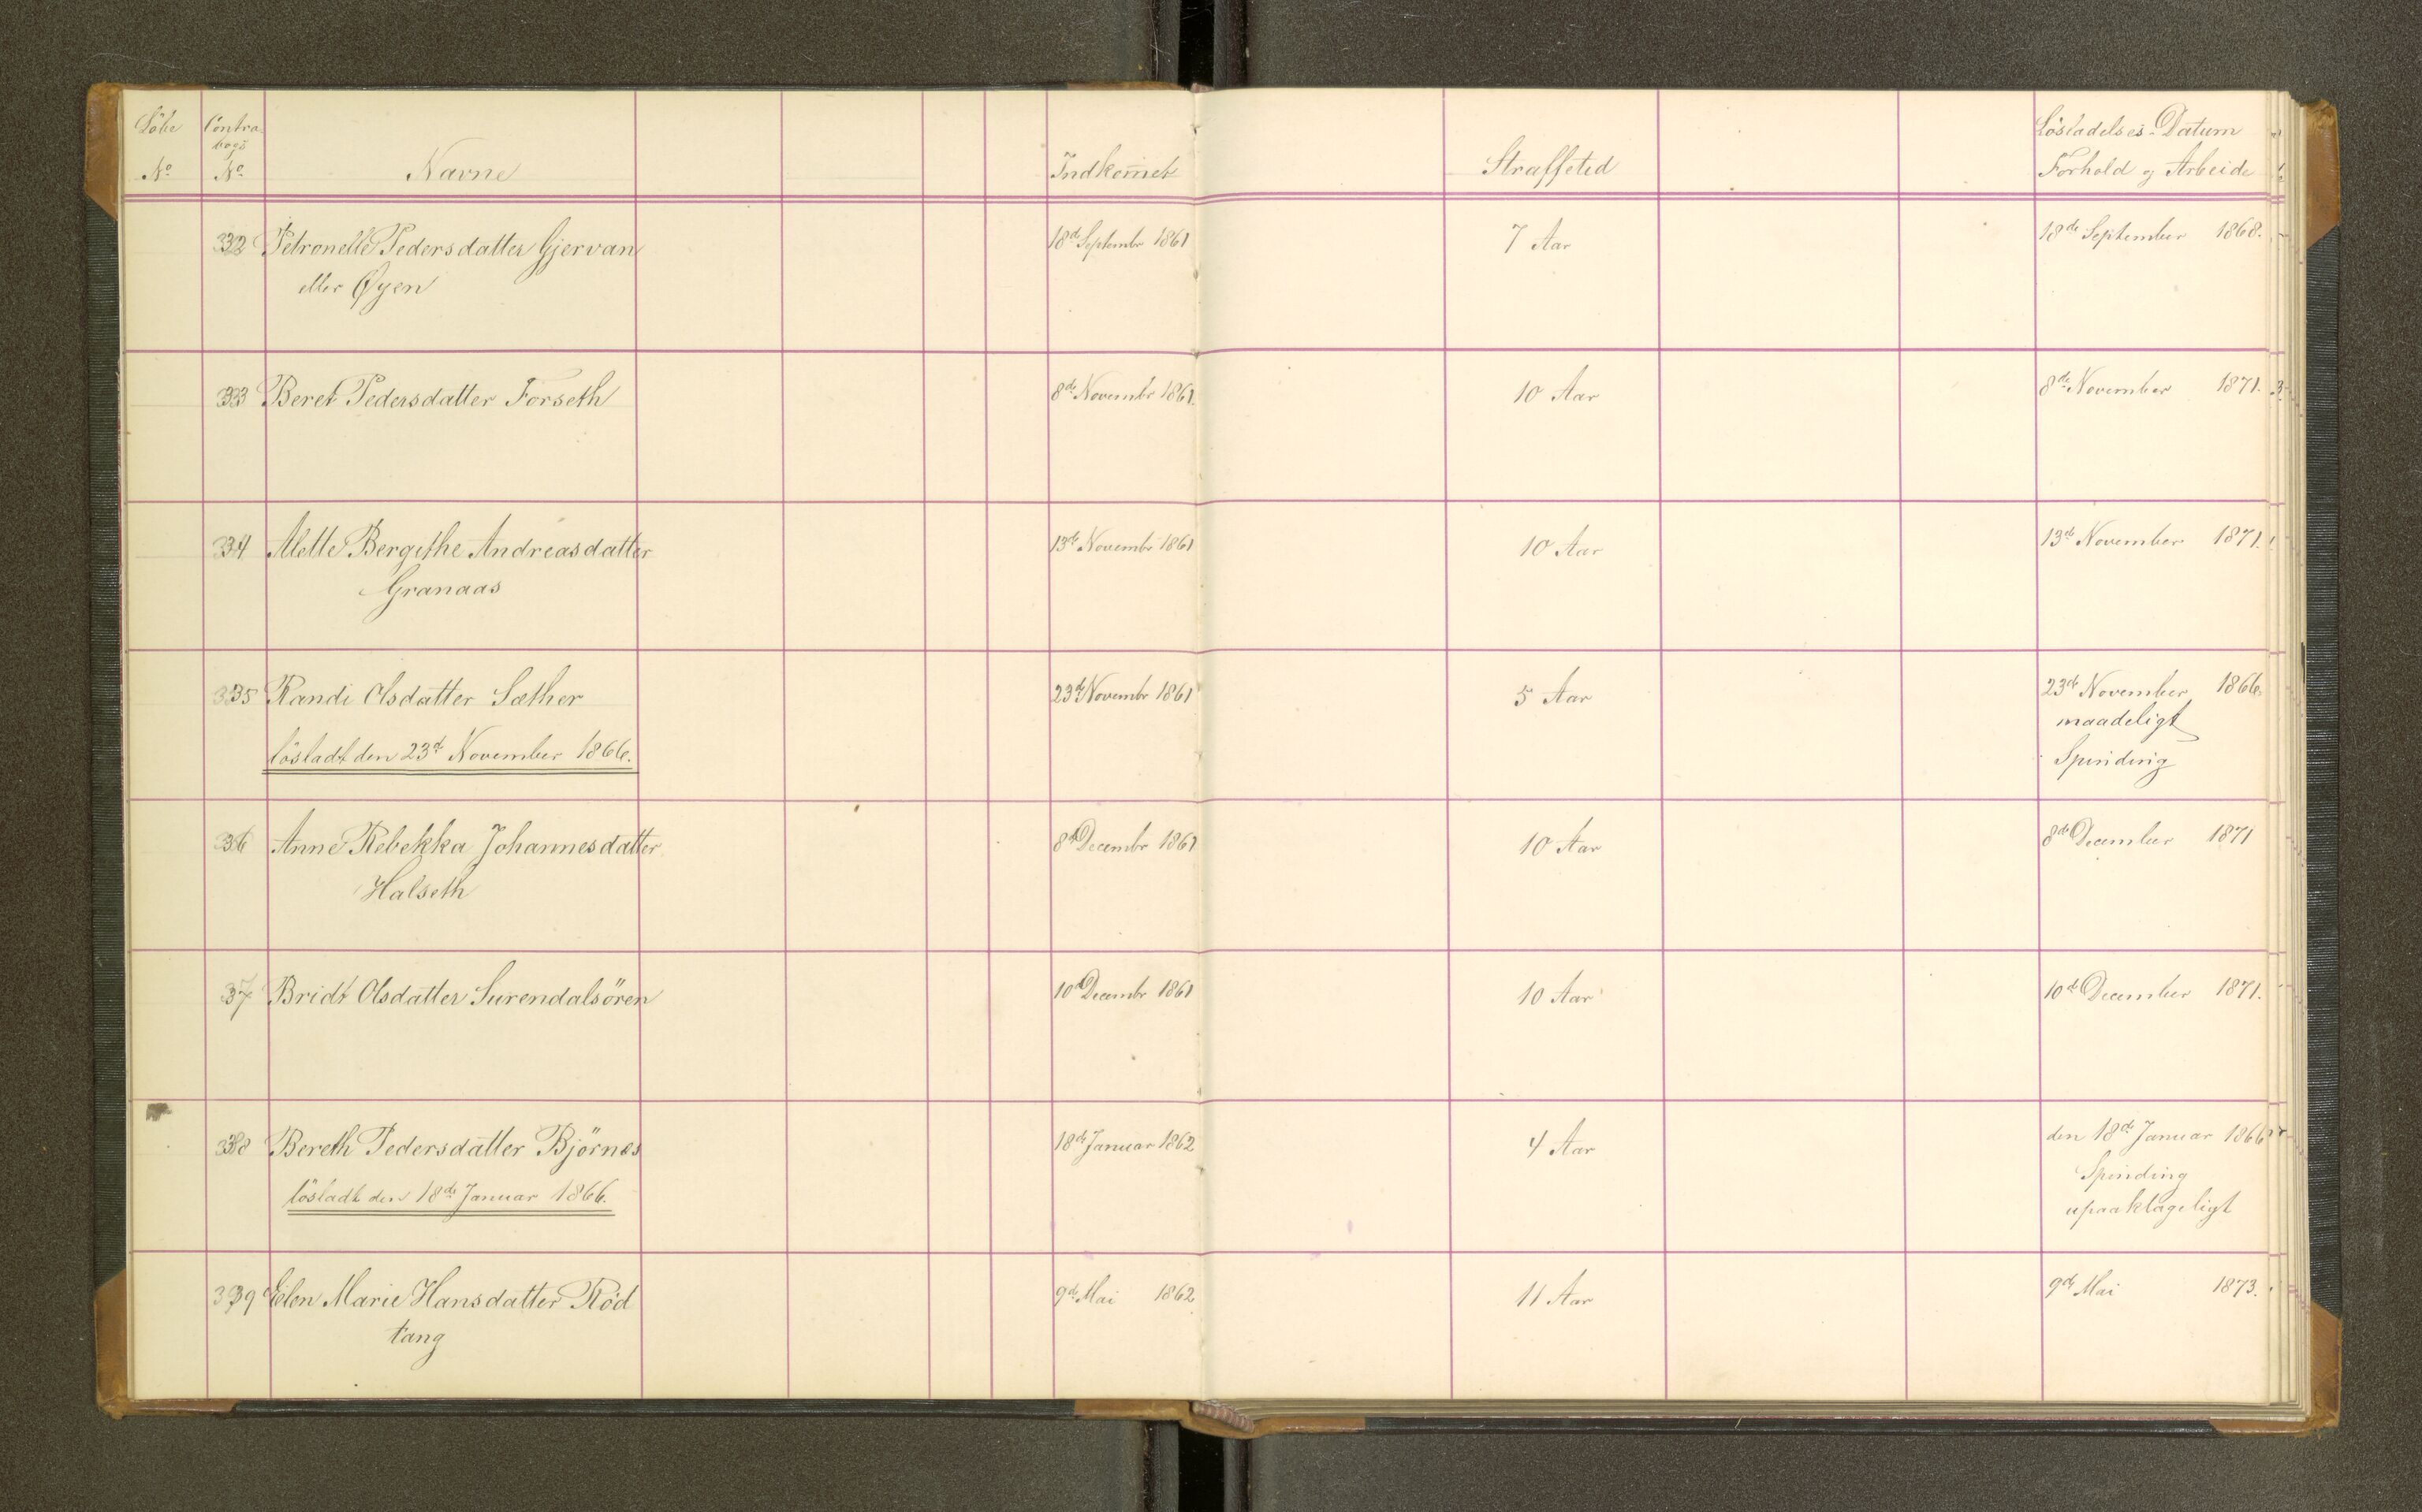 Löbe No Contra bogs No Navne Indkomet Straffetid Lösladelses-Datum Forhold og Arbeide
332 Petronelle Pedersdatter Gjervan 18de Septembr 1861 7 Aar 18de September 1868.
eller Øyen
333 Beret Pedersdatter Forseth 8de Novembr 1861. 10 Aar 8de November 1871.
334 Mette Bergithe Andreasdatter 13de Novembr 1861 10 Aar 13de November 1871.
Granaas
335 Randi Olsdatter Sæther 23de Novembr 1861 5 Aar 23de November 1866.
maadeligt
lösladt den 23de November 1866. Spinding
336 Anne Rebekka Johannesdatter 8de Decembr 1861 10 Aar 8de December 1871
Halseth
337 Bridt Olsdatter Surendalsören 10de Decembr 1861 10 Aar 10de December 1871.
338 Bereth Pedersdatter Björnes 18de Januar 1862 4 Aar den 18de Januar 1866
Spinding
lösladt den 18de Januar 1866. upaaklageligt
339 Elen Marie Hansdatter Röd 9de Mai 1862 11 Aar 9de Mai 1873.
tang